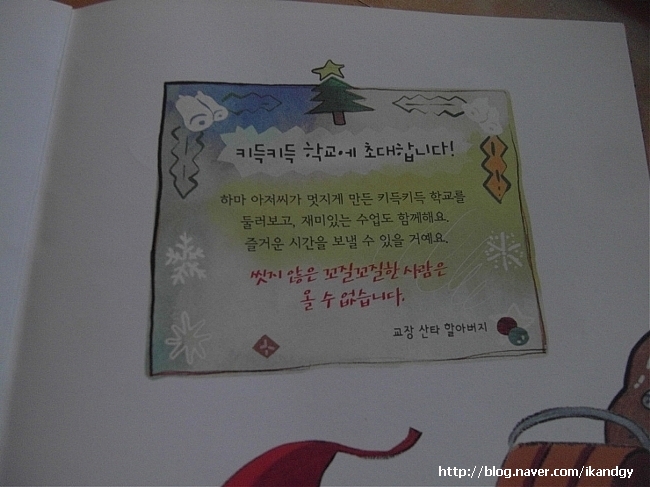 키득키득 학교에 초대합니다!
하마 아저씨가 멋지게 만든 키득키득 학교를
둘러보고, 재미있는 수업도 함께해요.
즐거운 시간을 보낼 수 있을 거예요.
씻지 않은 꼬질꼬질한 사람은
올 수 없습니다.
교장 산타 할아버지
http://blog.naver.com/ikandgy